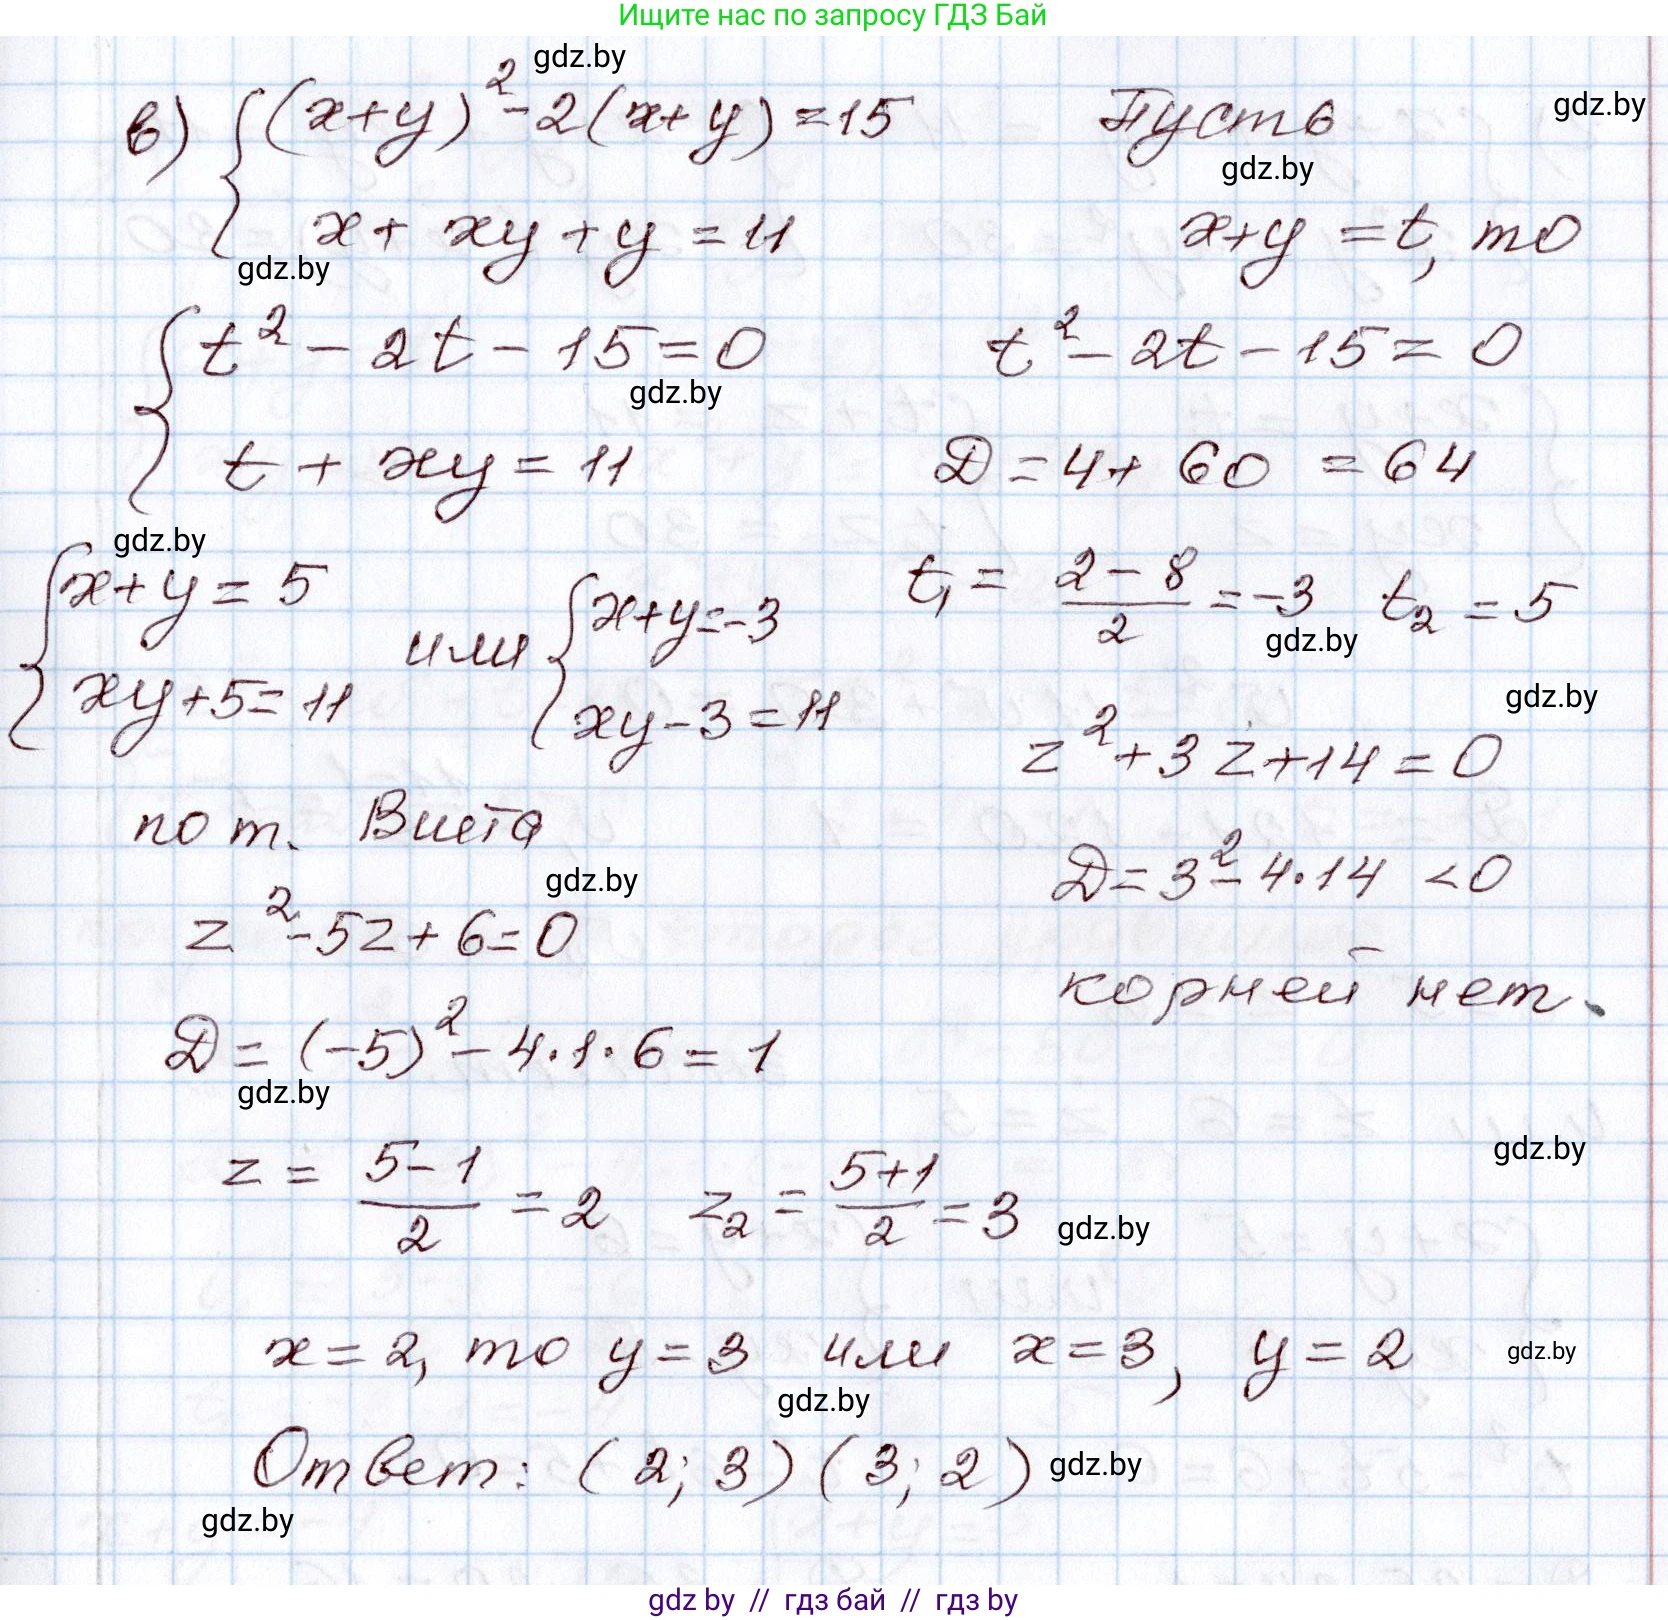 Ищите нас по запросу ГДЗ Бай
gdz.by
в) { (x+y)² - 2(x+y) = 15 Пусть
gdz.by
gdz.by
x + xy + y = 11 x+y = t, то
gdz.by
{ t² - 2t - 15 = 0 t² - 2t - 15 = 0
gdz.by
t + xy = 11 D = 4 + 60 = 64
gdz.by
{ x+y = 5 или { x+y = -3 t₁ = (2-8)/2 = -3 t₂ = 5
gdz.by
xy+5 = 11 xy-3 = 11
gdz.by
z² + 3z + 14 = 0
по т. Виета
D = 3² - 4·14 < 0
gdz.by
z² - 5z + 6 = 0
корней нет.
D = (-5)² - 4·1·6 = 1
gdz.by
gdz.by
z = (5-1)/2 = 2 z₂ = (5+1)/2 = 3
gdz.by
x = 2, то y = 3 или x = 3, y = 2
gdz.by
gdz.by
Ответ: (2; 3) (3; 2)
gdz.by
gdz.by
gdz by // гдз бай // гдз by